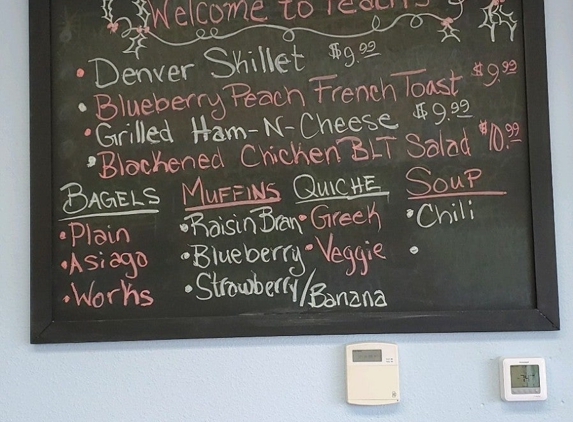 Welcome to Peach's
• Denver Skillet $9.99
• Blueberry Peach French Toast $9.99
• Grilled Ham-N-Cheese $9.99
• Blackened Chicken BLT Salad $10.99
BAGELS
• Plain
• Asiago
• Works
MUFFINS
• Raisin Bran
• Blueberry
• Strawberry/Banana
QUICHE
• Greek
• Veggie
SOUP
• Chili
•